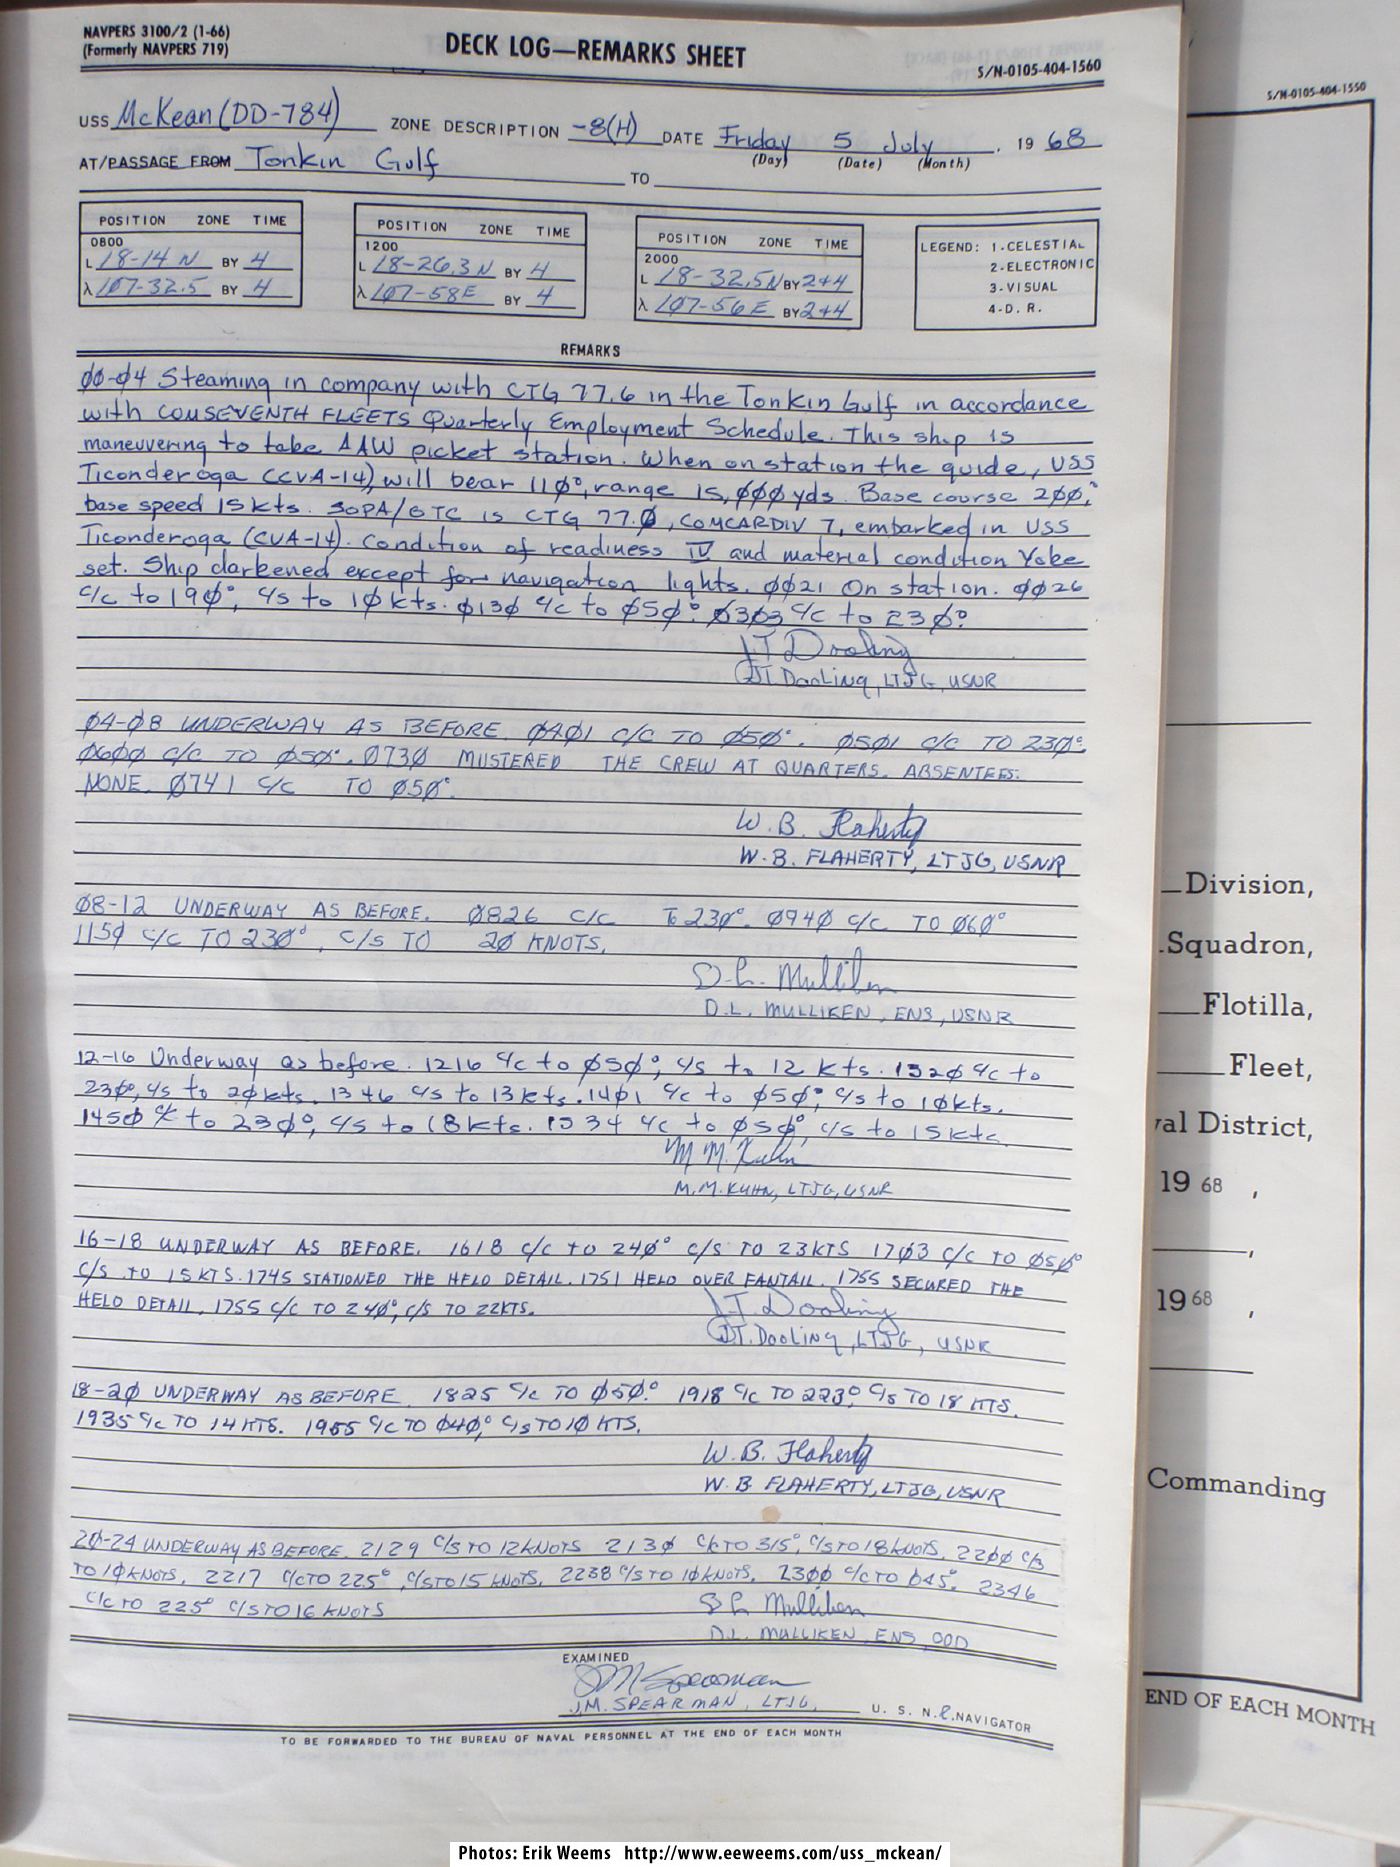 NAVPERS 3100/2 (1-66)
(Formerly NAVPERS 719)
DECK LOG—REMARKS SHEET
S/N-0105-404-1560
USS McKean (DD-784) ZONE DESCRIPTION -8(H) DATE Friday 5 July, 19 68
(Day) (Date) (Month)
AT/PASSAGE FROM Tonkin Gulf TO
POSITION ZONE TIME
0800
L 18-14 N BY 4
λ 107-32.5 BY 4
POSITION ZONE TIME
1200
L 18-26.3 N BY 4
λ 107-58E BY 4
POSITION ZONE TIME
2000
L 18-32.5N BY 2+4
λ 107-56 E BY 2+4
LEGEND: 1-CELESTIAL
2-ELECTRONIC
3-VISUAL
4-D. R.
REMARKS
00-04 Steaming in company with CTG 77.6 in the Tonkin Gulf in accordance
with COMSEVENTH FLEETS Quarterly Employment Schedule. This ship is
maneuvering to take AAW picket station. When on station the guide, USS
Ticonderoga (CVA-14), will bear 110°, range 15,000 yds. Base course 200,°
base speed 15 kts. SOPA/OTC is CTG 77.0, COMCARDIV 7, embarked in USS
Ticonderoga (CVA-14). Condition of readiness IV and material condition Yoke
set. Ship darkened except for navigation lights. 0021 On station. 0026
C/c to 190°, c/s to 10 kts. 0130 c/c to 050°. 0303 c/c to 230°.
JT Dooling
JT Dooling, LTJG, USNR
04-08 UNDERWAY AS BEFORE. 0401 C/C TO 050°. 0501 C/C TO 230°.
0600 C/C TO 050°. 0730 MUSTERED THE CREW AT QUARTERS. ABSENTEES:
NONE. 0741 C/C TO 050°.
W. B. Flaherty
W. B. FLAHERTY, LTJG, USNR
08-12 UNDERWAY AS BEFORE. 0826 C/C To 230°. 0940 C/C TO 060°
1150 C/C TO 230°, C/S TO 20 KNOTS.
D. L. Mulliken
D.L. MULLIKEN, ENS, USNR
12-16 Underway as before. 1216 c/c to 050°, c/s to 12 kts. 1320 c/c to
230°, c/s to 20 kts. 1346 c/s to 13 kts. 1401 c/c to 050°, c/s to 10 kts.
1450 c/c to 230°, c/s to 18 kts. 1534 c/c to 050°, c/s to 15 kts.
M M. Kuhn
M.M. KUHN, LTJG, USNR
16-18 UNDERWAY AS BEFORE. 1618 C/C TO 240° C/S TO 23 KTS 1703 C/C TO 050°
C/S TO 15 KTS. 1745 STATIONED THE HELO DETAIL. 1751 HELO OVER FANTAIL. 1755 SECURED THE
HELO DETAIL. 1755 C/C TO 240°, C/S TO 22 KTS.
J.T. Dooling
JT. Dooling, LTJG, USNR
18-20 UNDERWAY AS BEFORE. 1825 C/C TO 050°. 1918 C/C TO 223°, C/S TO 18 KTS.
1935 C/C TO 14 KTS. 1955 C/C TO 040°, C/S TO 10 KTS.
W. B. Flaherty
W. B FLAHERTY, LTJG, USNR
20-24 UNDERWAY AS BEFORE. 2129 C/S TO 12 KNOTS 2130 C/C TO 315°, C/S TO 18 KNOTS. 2200 C/S
TO 10 KNOTS. 2217 C/C TO 225°, C/S TO 15 KNOTS. 2238 C/S TO 10 KNOTS. 2300 C/C TO 045°. 2346
C/C TO 225° C/S TO 16 KNOTS
D L Mulliken
D.L. MULLIKEN, ENS, OOD
EXAMINED
JM Spearman
J.M. SPEARMAN, LTJG, U. S. N.R. NAVIGATOR
TO BE FORWARDED TO THE BUREAU OF NAVAL PERSONNEL AT THE END OF EACH MONTH
S/N-0105-404-1550
Division,
Squadron,
Flotilla,
Fleet,
val District,
19 68 ,
19 68 ,
Commanding
END OF EACH MONTH
Photos: Erik Weems http://www.eeweems.com/uss_mckean/